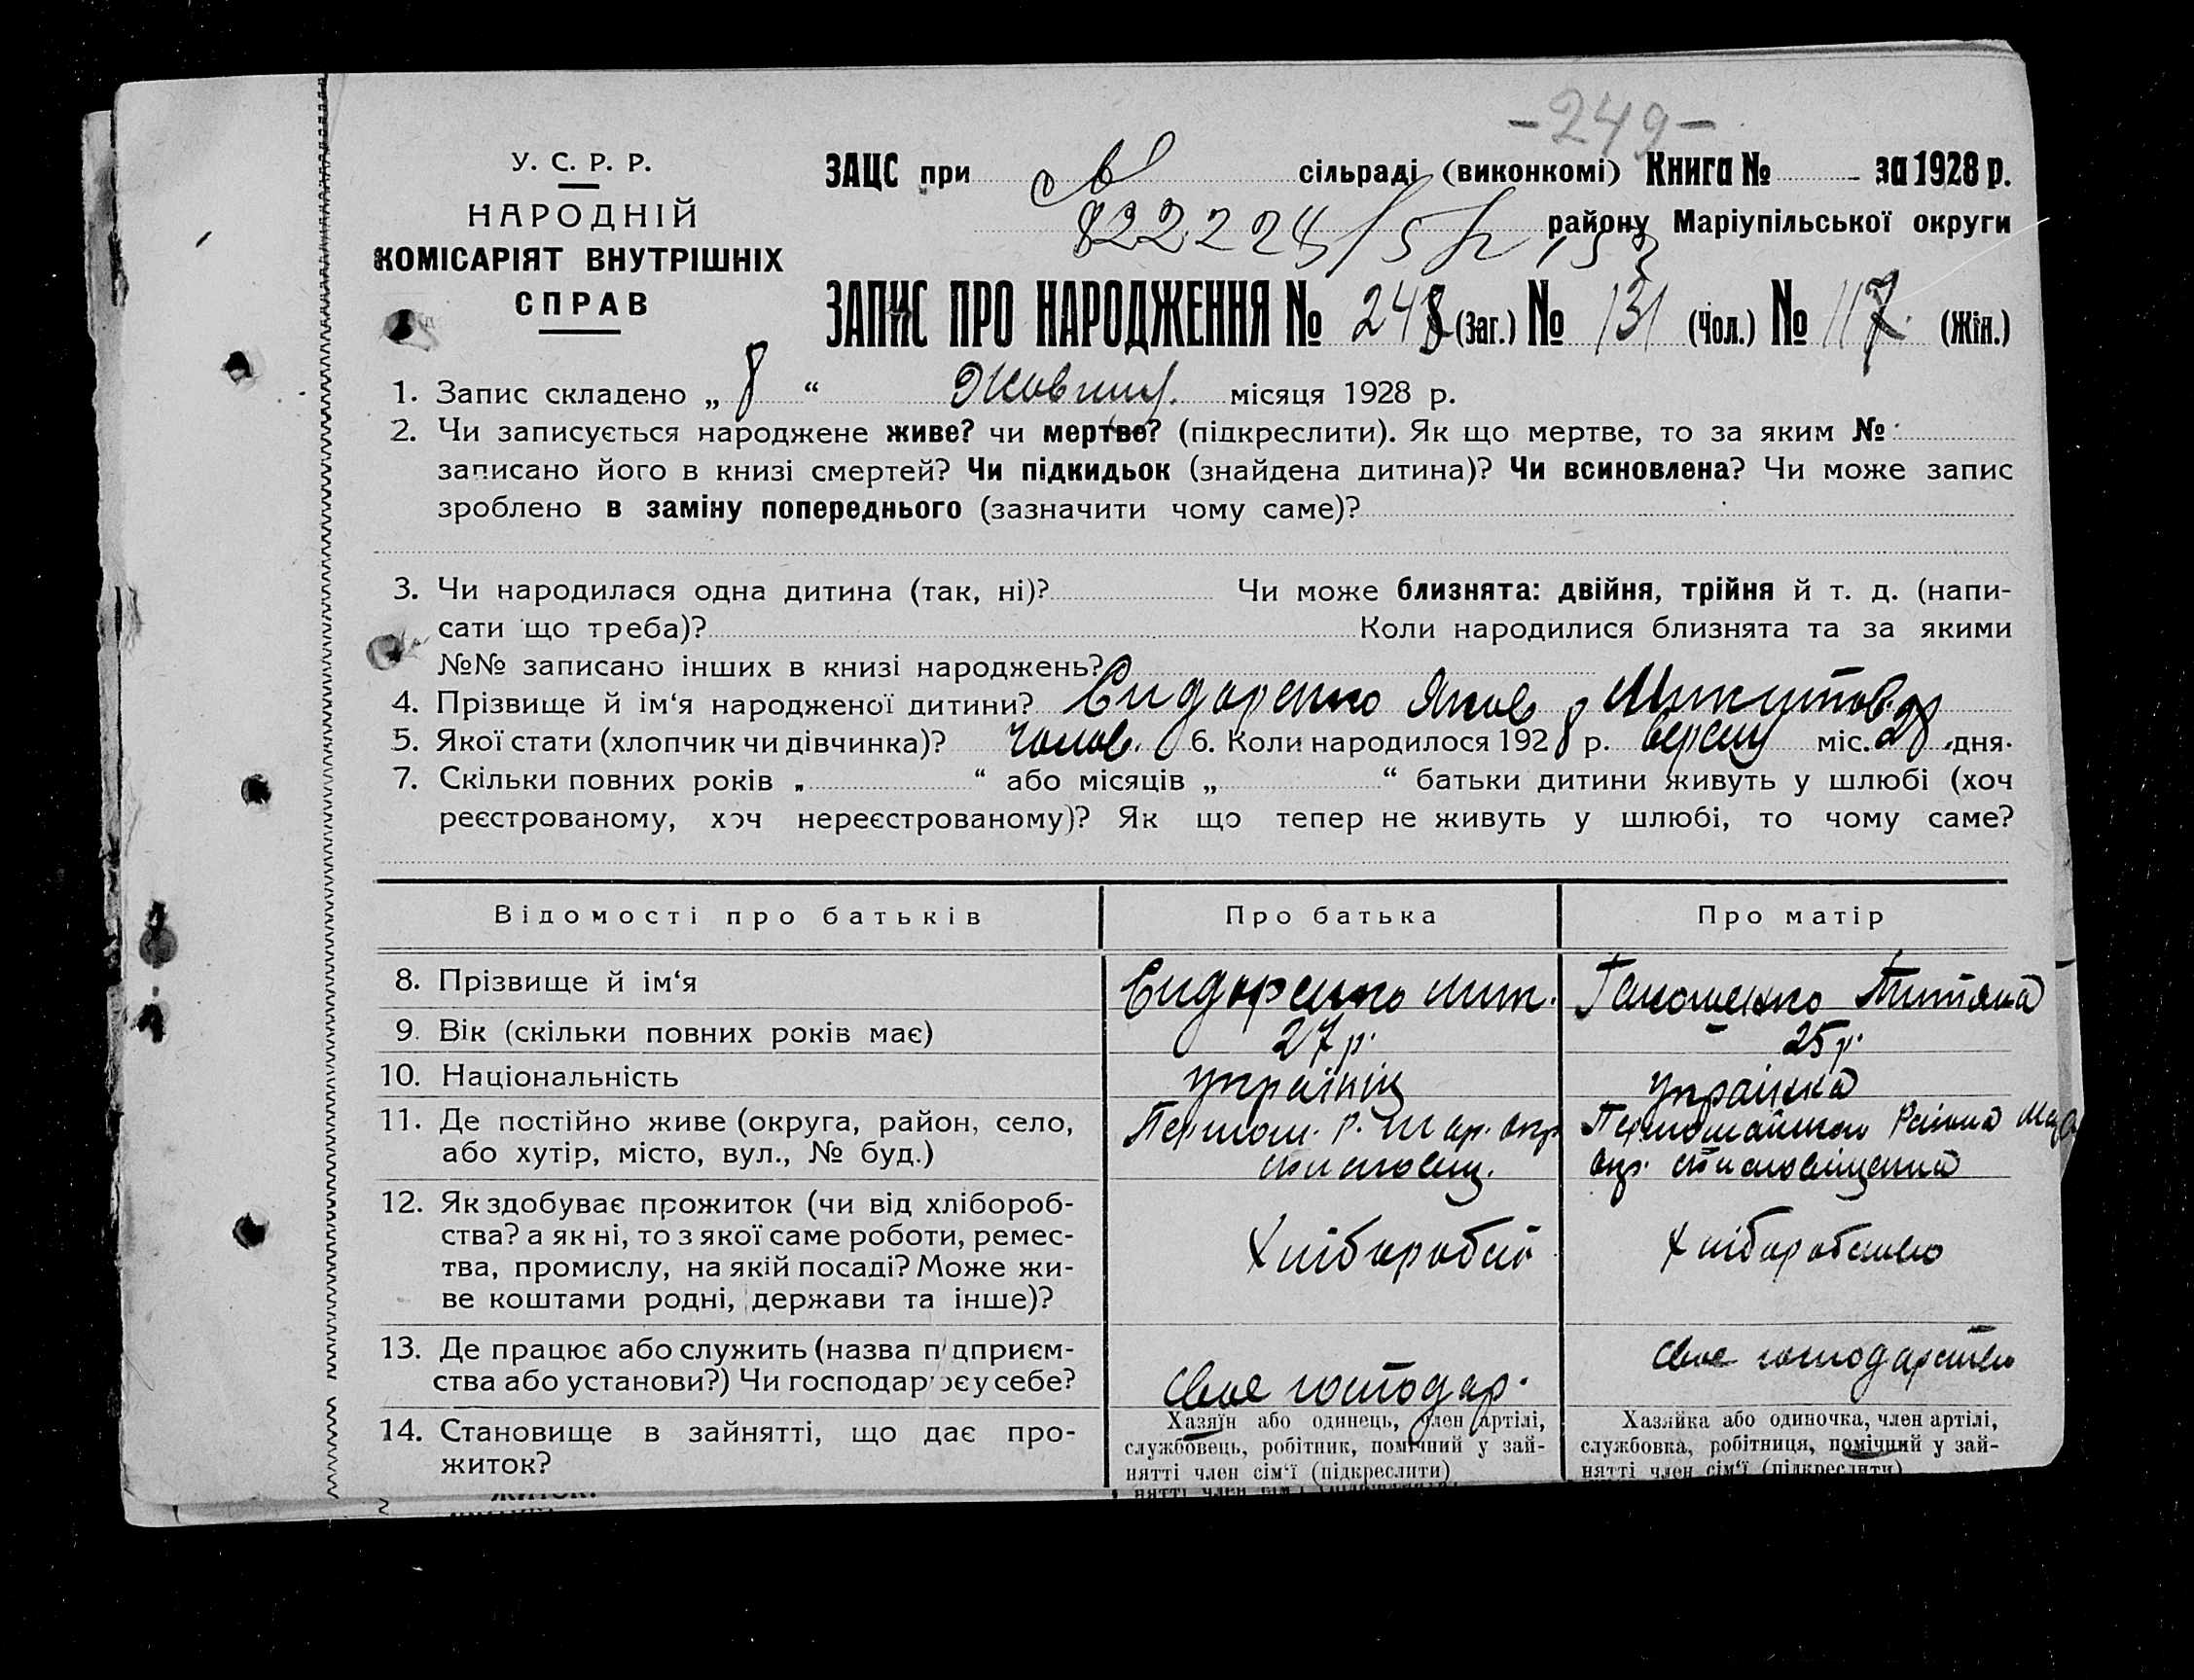 -249-
У. С. Р. Р.
НАРОДНІЙ
КОМІСАРІЯТ ВНУТРІШНІХ
СПРАВ
ЗАЦС при сільраді (виконкомі) Книга № за 1928 р.
району Маріупільської округи
ЗАПИС ПРО НАРОДЖЕННЯ № 248 (Заг.) № 131 (Чол.) № 117 (Жін.)
1. Запис складено „ 8 “ Жовтня місяця 1928 р.
2. Чи записується народжене живе? чи мертве? (підкреслити). Як що мертве, то за яким №
записано його в книзі смертей? Чи підкидьок (знайдена дитина)? Чи всиновлена? Чи може запис
зроблено в заміну попереднього (зазначити чому саме)?
3. Чи народилася одна дитина (так, ні)? Чи може близнята: двійня, трійня й т. д. (напи-
сати що треба)? Коли народилися близнята та за якими
№№ записано інших в книзі народжень?
4. Прізвище й ім‘я народженої дитини? Сидоренко Яков Микитов.
5. Якої стати (хлопчик чи дівчинка)? чолов. 6. Коли народилося 1928 р. версня міс. 28 дня.
7. Скільки повних років „ “ або місяців „ “ батьки дитини живуть у шлюбі (хоч
реєстрованому, хоч нереєстрованому)? Як що тепер не живуть у шлюбі, то чому саме?
Відомості про батьків Про батька Про матір
8. Прізвище й ім‘я Сидоренко Мик. Тимошенко Титяна
9. Вік (скільки повних років має) 27 р. 25 р.
10. Національність українц українка
11. Де постійно живе (округа, район, село,
або хутір, місто, вул., № буд.)
Першом. р. Мар. окр.
Першомайского Района Мар
окр.
12. Як здобуває прожиток (чи від хлібороб-
ства? а як ні, то з якої саме роботи, ремес-
тва, промислу, на якій посаді? Може жи-
ве коштами родні, держави та інше)?
Хліборобст
Хліборобство
13. Де працює або служить (назва підприєм-
ства або установи?) Чи господарює у себе?
свое господар.
свое господарство
14. Становище в зайнятті, що дає про-
житок?
Хазяїн або одинець, член артілі,
службовець, робітник, помічний у зай-
нятті член сім‘ї (підкреслити)
Хазяйка або одиночка, член артілі,
службовка, робітниця, помічний у зай-
нятті член сім‘ї (підкреслити)